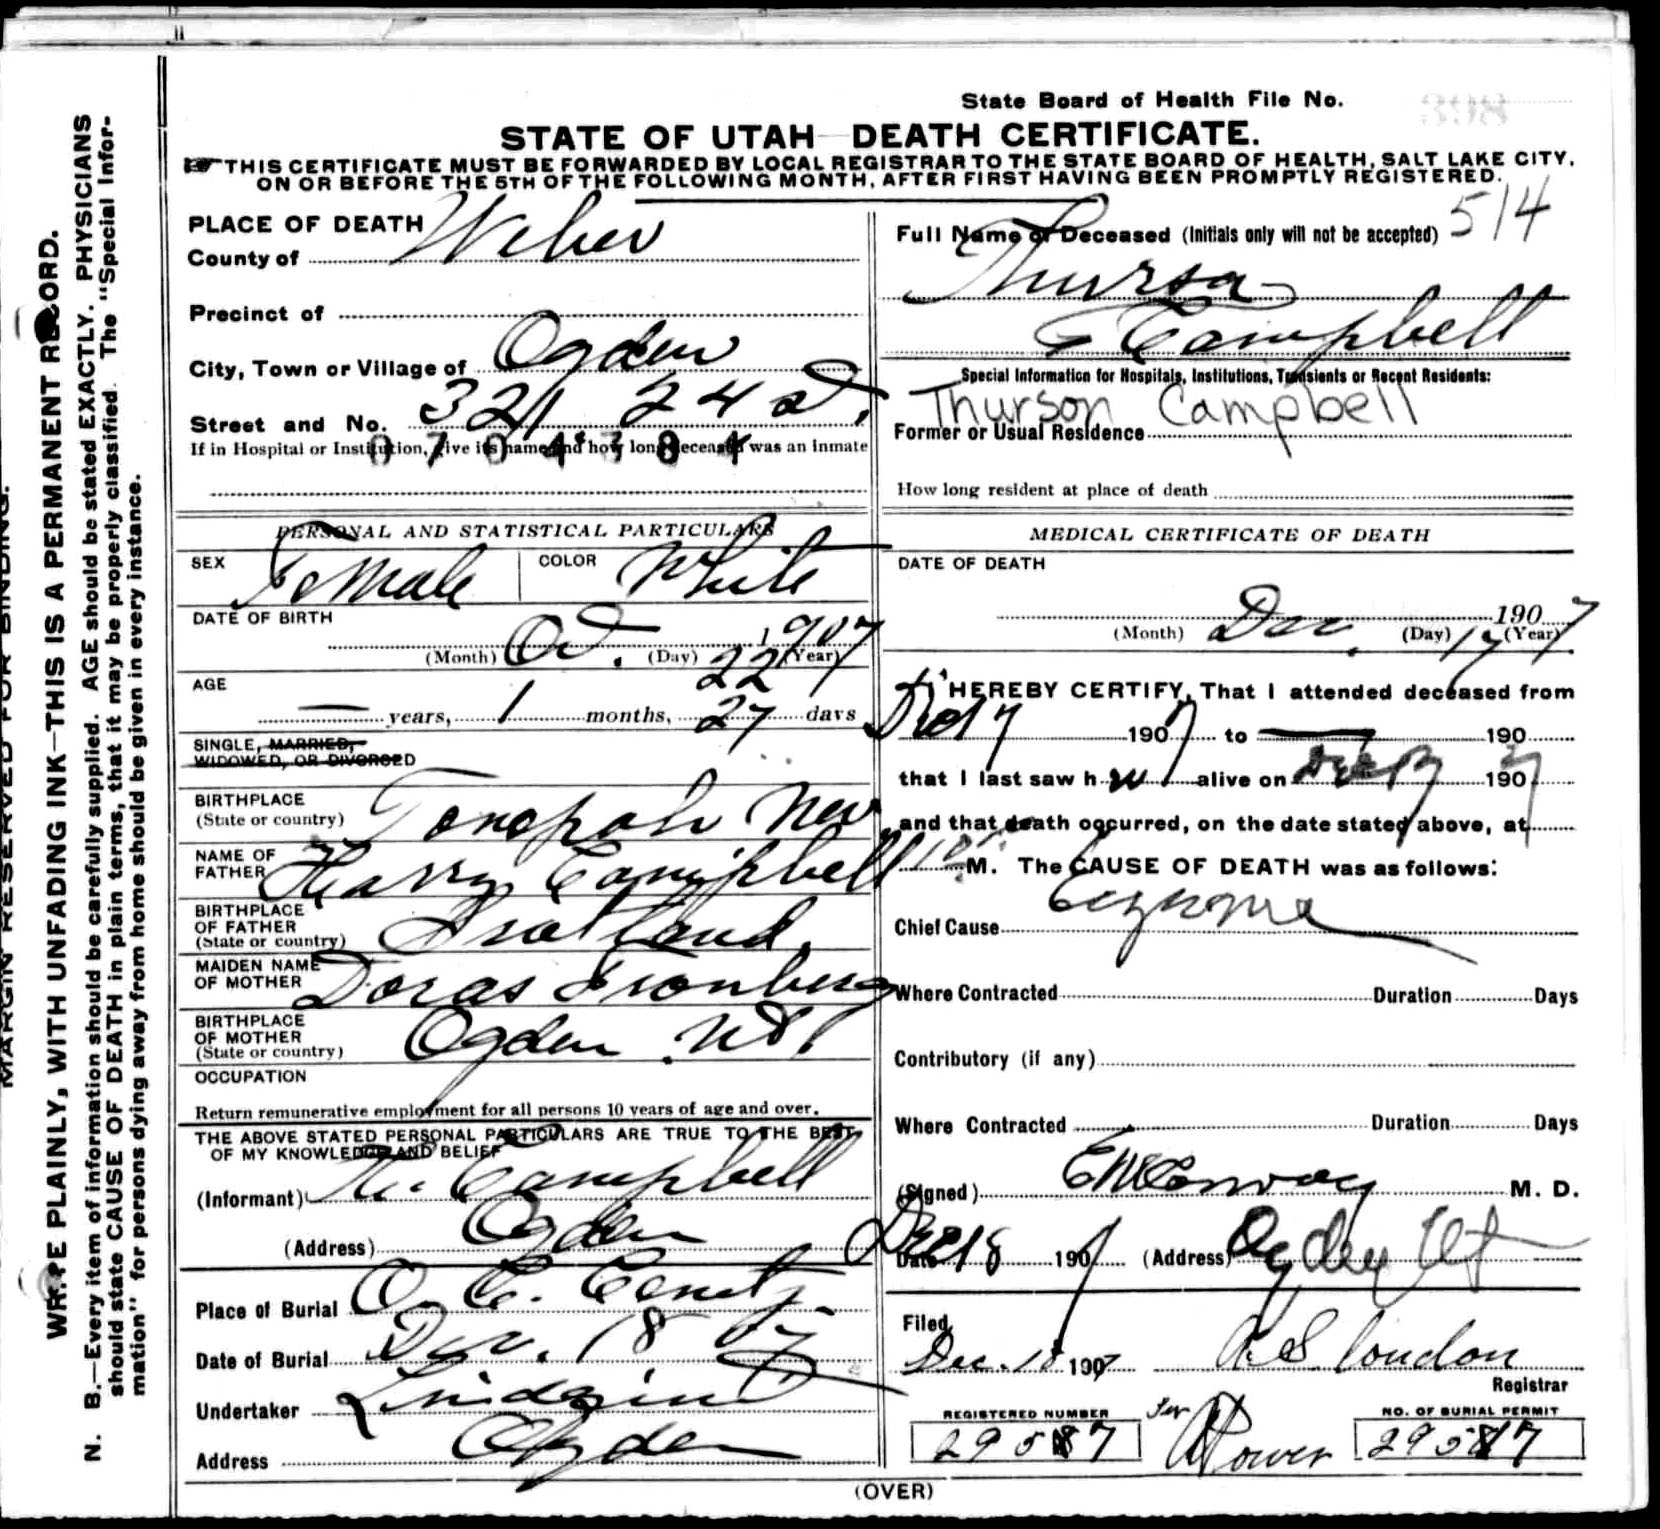 State Board of Health File No. 398
STATE OF UTAH DEATH CERTIFICATE.
THIS CERTIFICATE MUST BE FORWARDED BY LOCAL REGISTRAR TO THE STATE BOARD OF HEALTH, SALT LAKE CITY,
ON OR BEFORE THE 5TH OF THE FOLLOWING MONTH, AFTER FIRST HAVING BEEN PROMPTLY REGISTERED.
MARGIN RESERVED FOR BINDING.
WRITE PLAINLY, WITH UNFADING INK—THIS IS A PERMANENT RECORD.
N. B.—Every item of information should be carefully supplied. AGE should be stated EXACTLY. PHYSICIANS
should state CAUSE OF DEATH in plain terms, that it may be properly classified. The "Special Infor-
mation" for persons dying away from home should be given in every instance.
PLACE OF DEATH
County of Weber
Precinct of
City, Town or Village of Ogden
Street and No. 321 24 St.
If in Hospital or Institution, give its name and how long deceased was an inmate
0704384
PERSONAL AND STATISTICAL PARTICULARS
SEX Female COLOR White
DATE OF BIRTH
(Month) Oct. (Day) 22 (Year) 1907
AGE
— years, 1 months, 27 days
SINGLE, MARRIED,
WIDOWED, OR DIVORCED
BIRTHPLACE
(State or country) Tonopah Nev
NAME OF
FATHER Harry Campbell
BIRTHPLACE
OF FATHER
(State or country) Scotland
MAIDEN NAME
OF MOTHER Doras
BIRTHPLACE
OF MOTHER
(State or country) Ogden Ut.
OCCUPATION
Return remunerative employment for all persons 10 years of age and over.
THE ABOVE STATED PERSONAL PARTICULARS ARE TRUE TO THE BEST
OF MY KNOWLEDGE AND BELIEF
(Informant) Campbell
(Address) Ogden
Place of Burial O. C. Cemty.
Date of Burial Dec. 18 07
Undertaker Lindquist
Address Ogden
Full Name of Deceased (Initials only will not be accepted) 514
Thursa
Campbell
Special Information for Hospitals, Institutions, Transients or Recent Residents:
Thurson Campbell
Former or Usual Residence
How long resident at place of death
MEDICAL CERTIFICATE OF DEATH
DATE OF DEATH
1907
(Month) Dec. (Day) 17 (Year)
I HEREBY CERTIFY, That I attended deceased from
1907 to — 190
that I last saw h er alive on Dec 17 1907
and that death occurred, on the date stated above, at
M. The CAUSE OF DEATH was as follows:
Chief Cause Eczema
Where Contracted Duration Days
Contributory (if any)
Where Contracted Duration Days
(Signed) E M Conroy M. D.
Date Dec 18 1907 (Address) Ogden Ut
Filed
Dec. 18 1907 London
Registrar
REGISTERED NUMBER
29587
Per
Power
NO. OF BURIAL PERMIT
29587
(OVER)